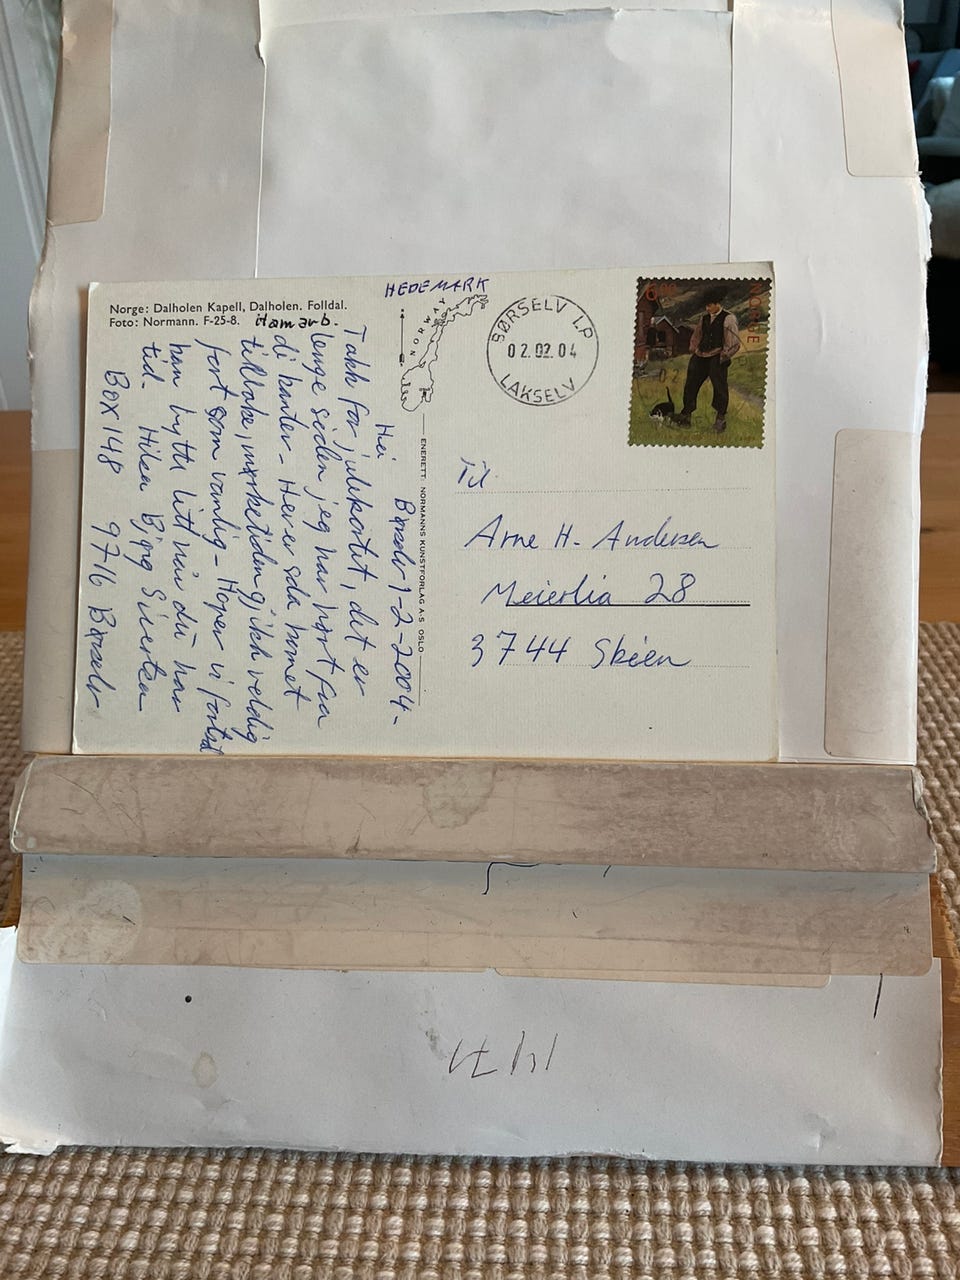 HEDEMARK
Norge: Dalholen Kapell, Dalholen. Folldal.
Foto: Normann. F-25-8. Hamarb.
NORWAY
BØRSELV LP
02.02.04
LAKSELV
NORGE
Børselv 1-2-2004-
Hei
Takk for julekortet, det er
lenge siden jeg har hørt fra
di kanter - Her er sola komet
tilbake, mørketiden gikk veldig
fort som vanlig - Håper vi fortsatt
kan bytte litt når du har
tid. Hilsen Bjørg Sivertsen
Box 148 9716 Børselv
ENERETT: NORMANNS KUNSTFORLAG A-S OSLO
Til
Arne H. Andersen
Meierlia 28
3744 Skien